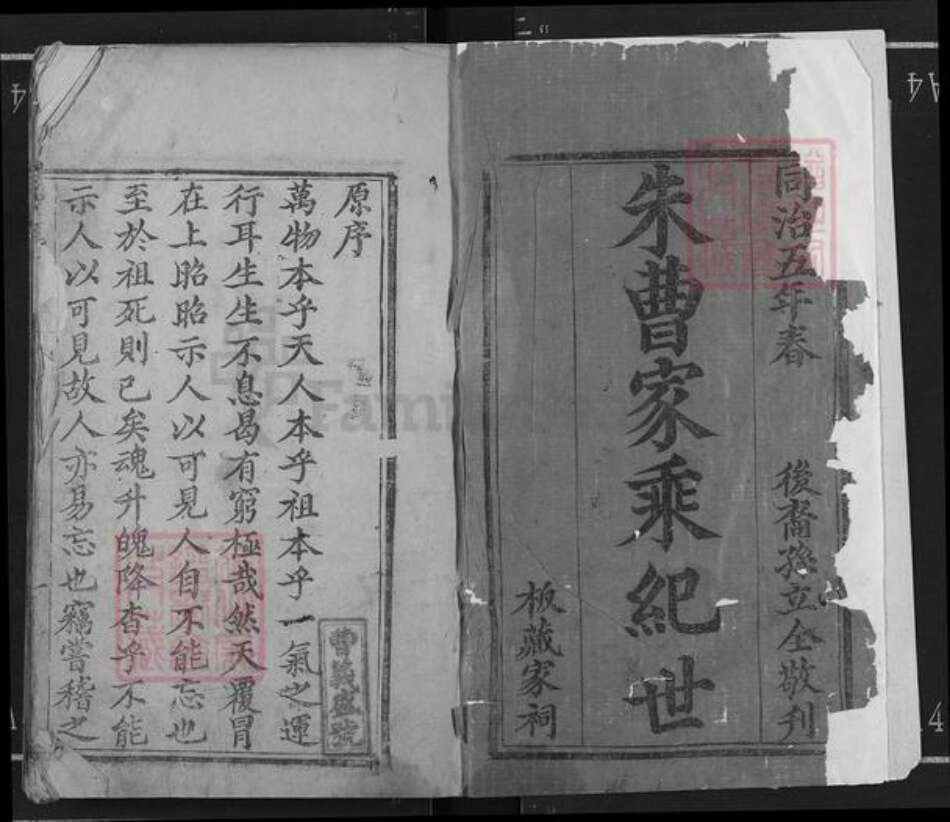 同治五年春 後裔孫立全敬刊
朱曹家乘紀世
板藏家祠
原序
萬物本乎天人本乎祖本乎一氣之運
行耳生生不息曷有窮極哉然天覆冒
在上昭昭示人以可見人自不能忘也
至於祖死則已矣魂升魄降杳乎不能
示人以可見故人亦易忘也竊嘗稽之
曹義盛號